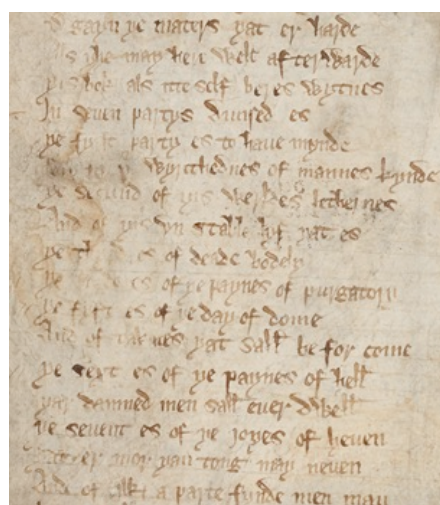 gayn ye maters yat er harde
ye may here well afterwarde
yis bok als itt self beres wytnes
In seven partys divised es
ye fyrst party es to have mynde
wrytchednes of mannes kynde
ye secund of yis werldes
And of yis un stable lyf yat es
ye es of dede bodely
ye es of ye paynes of purgatory
ye fyft es of ye day of dome
And of takens yat sall be for come
ye sext es of ye paynes of hell
yar damned men sall ever dwell
ye sevent es of ye joyes of heven
er mor yan tong may neven
And of ilk a parte fynde men may